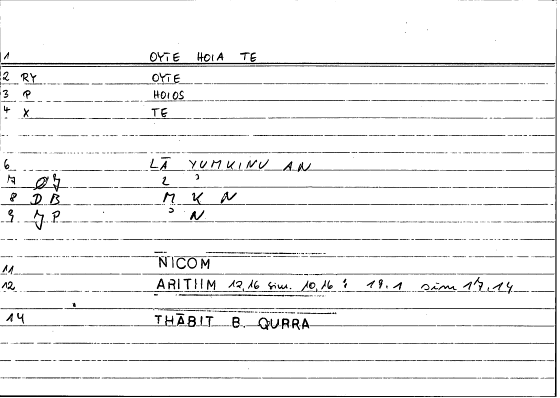 1 OYTE HOIA TE
2 RY OYTE
3 P HOIOS
4 X TE
6 LĀ YUMKINU AN
7 ØJ L ʾ
8 DB M K N
9 JP ʾ N
11 NICOM
12 ARITIIM 12,16 sim. 10,16 : 19.1 sim 17,14
14 THĀBIT B. QURRA